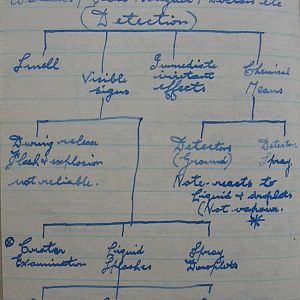 (Detection)
Smell
Visible signs
Immediate irritant effects
Chemical Means
During release
Flash & explosion
not reliable.
Detectors
(Ground)
Detector
Spray
Note: reacts to
Liquid & droplets
(Not vapour.
Crater
Examination
Liquid
Splashes
Spray
Droplets